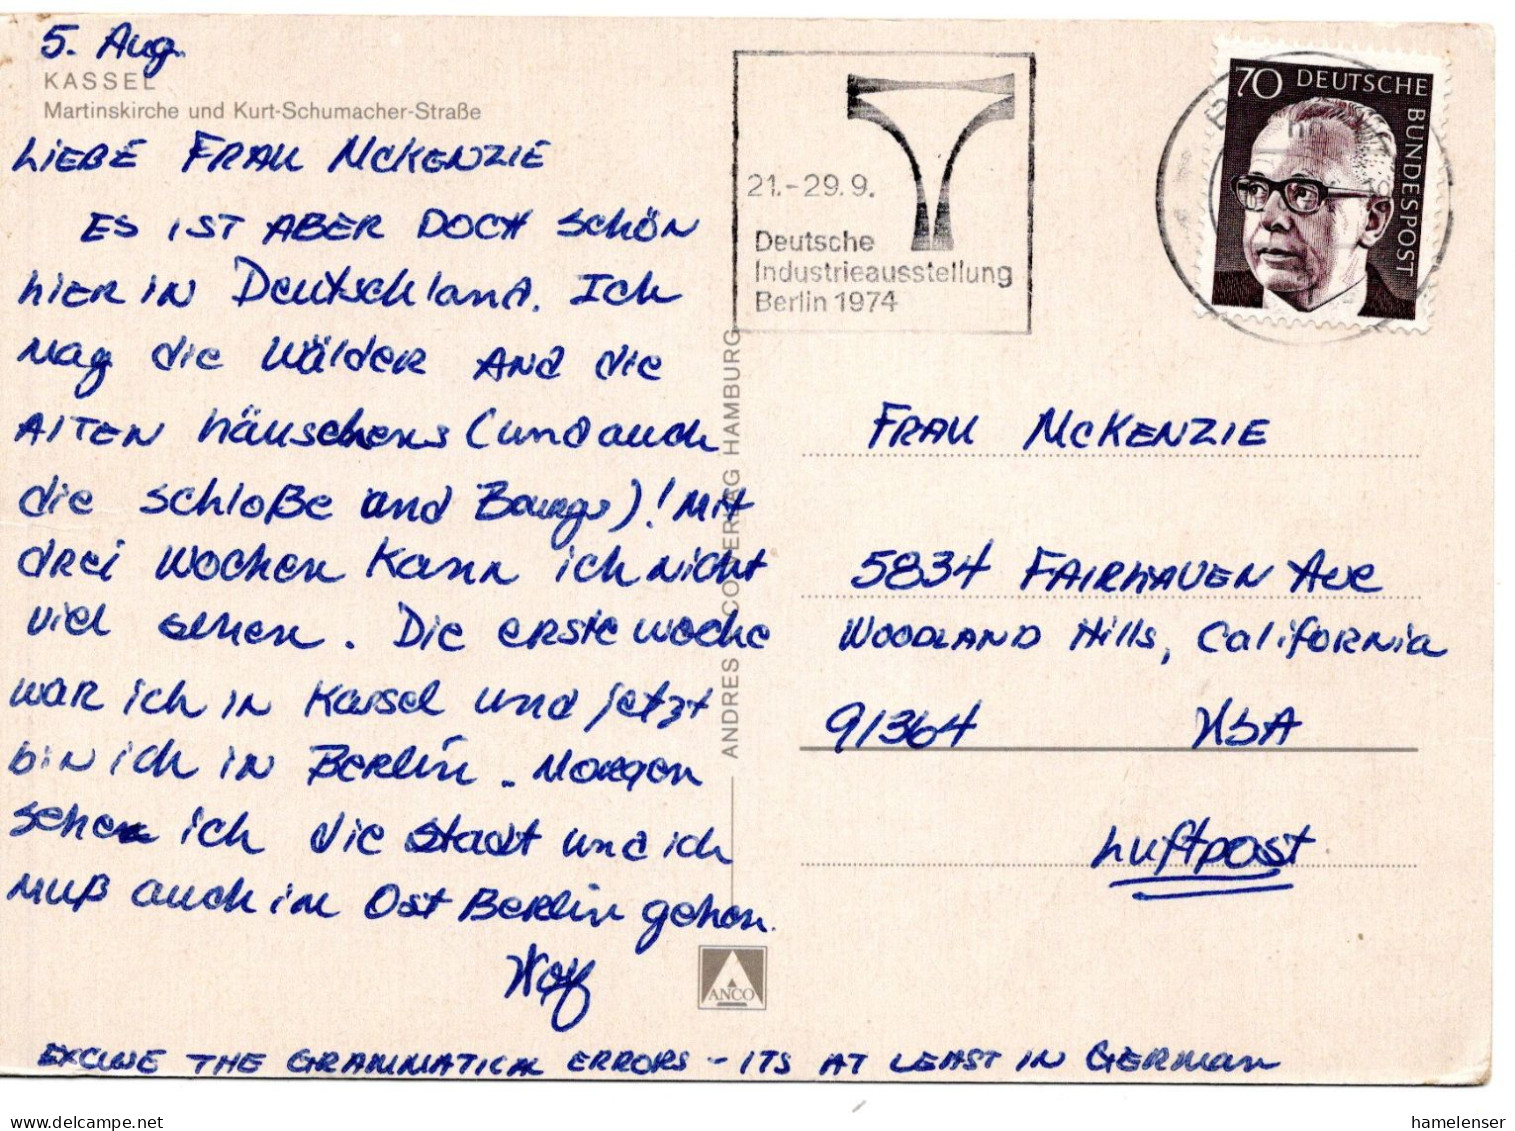 5. Aug.
KASSEL
Martinskirche und Kurt-Schumacher-Straße
LIEBE FRAU MCKENZIE
ES IST ABER DOCH SCHÖN
HIER IN Deutschland. Ich
mag die Wälder and die
ALTEN häuschens (und auch
die schloße and Bourgs)! Mit
drei Wochen Kann ich nicht
viel sehen. Die erste woche
war ich in Kassel und jetzt
bin ich in Berlin. Morgen
sehe ich die Stadt und ich
muß auch in Ost Berlin gehen.
Wolf
EXCUSE THE GRAMMATICAL ERRORS - ITS AT LEAST IN GERMAN
ANDRES + CO VERLAG HAMBURG
ANCO
21.-29.9.
Deutsche
Industrieausstellung
Berlin 1974
70 DEUTSCHE
BUNDESPOST
FRAU MCKENZIE
5834 FAIRHAVEN Ave
WOODLAND Hills, California
91364 USA
Luftpost
hamelenser